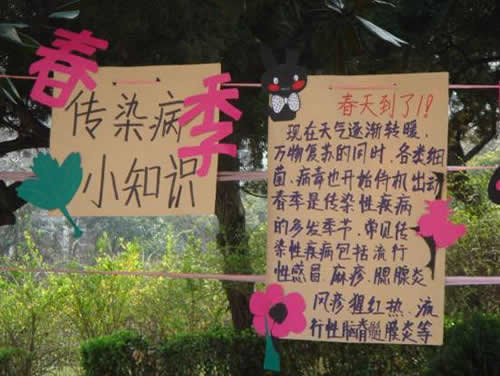 春季
传染病
小知识
春天到了!!
现在天气逐渐转暖、
万物复苏的同时、各类细
菌、病毒也开始伺机出动
春季是传染性疾病
的多发季节、常见传
染性疾病包括流行
性感冒、麻疹、腮腺炎
风疹猩红热、流
行性脑脊髓膜炎等